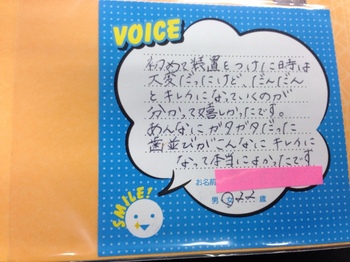 VOICE
初めて装置をつけた時は
大変だったけど、だんだん
とキレイになっていくのが
分かって嬉しかったです。
あんなにガタガタだった
歯並びがこんなにキレイに
なって本当によかったです
お名前
男 女 22 歳
SMILE!